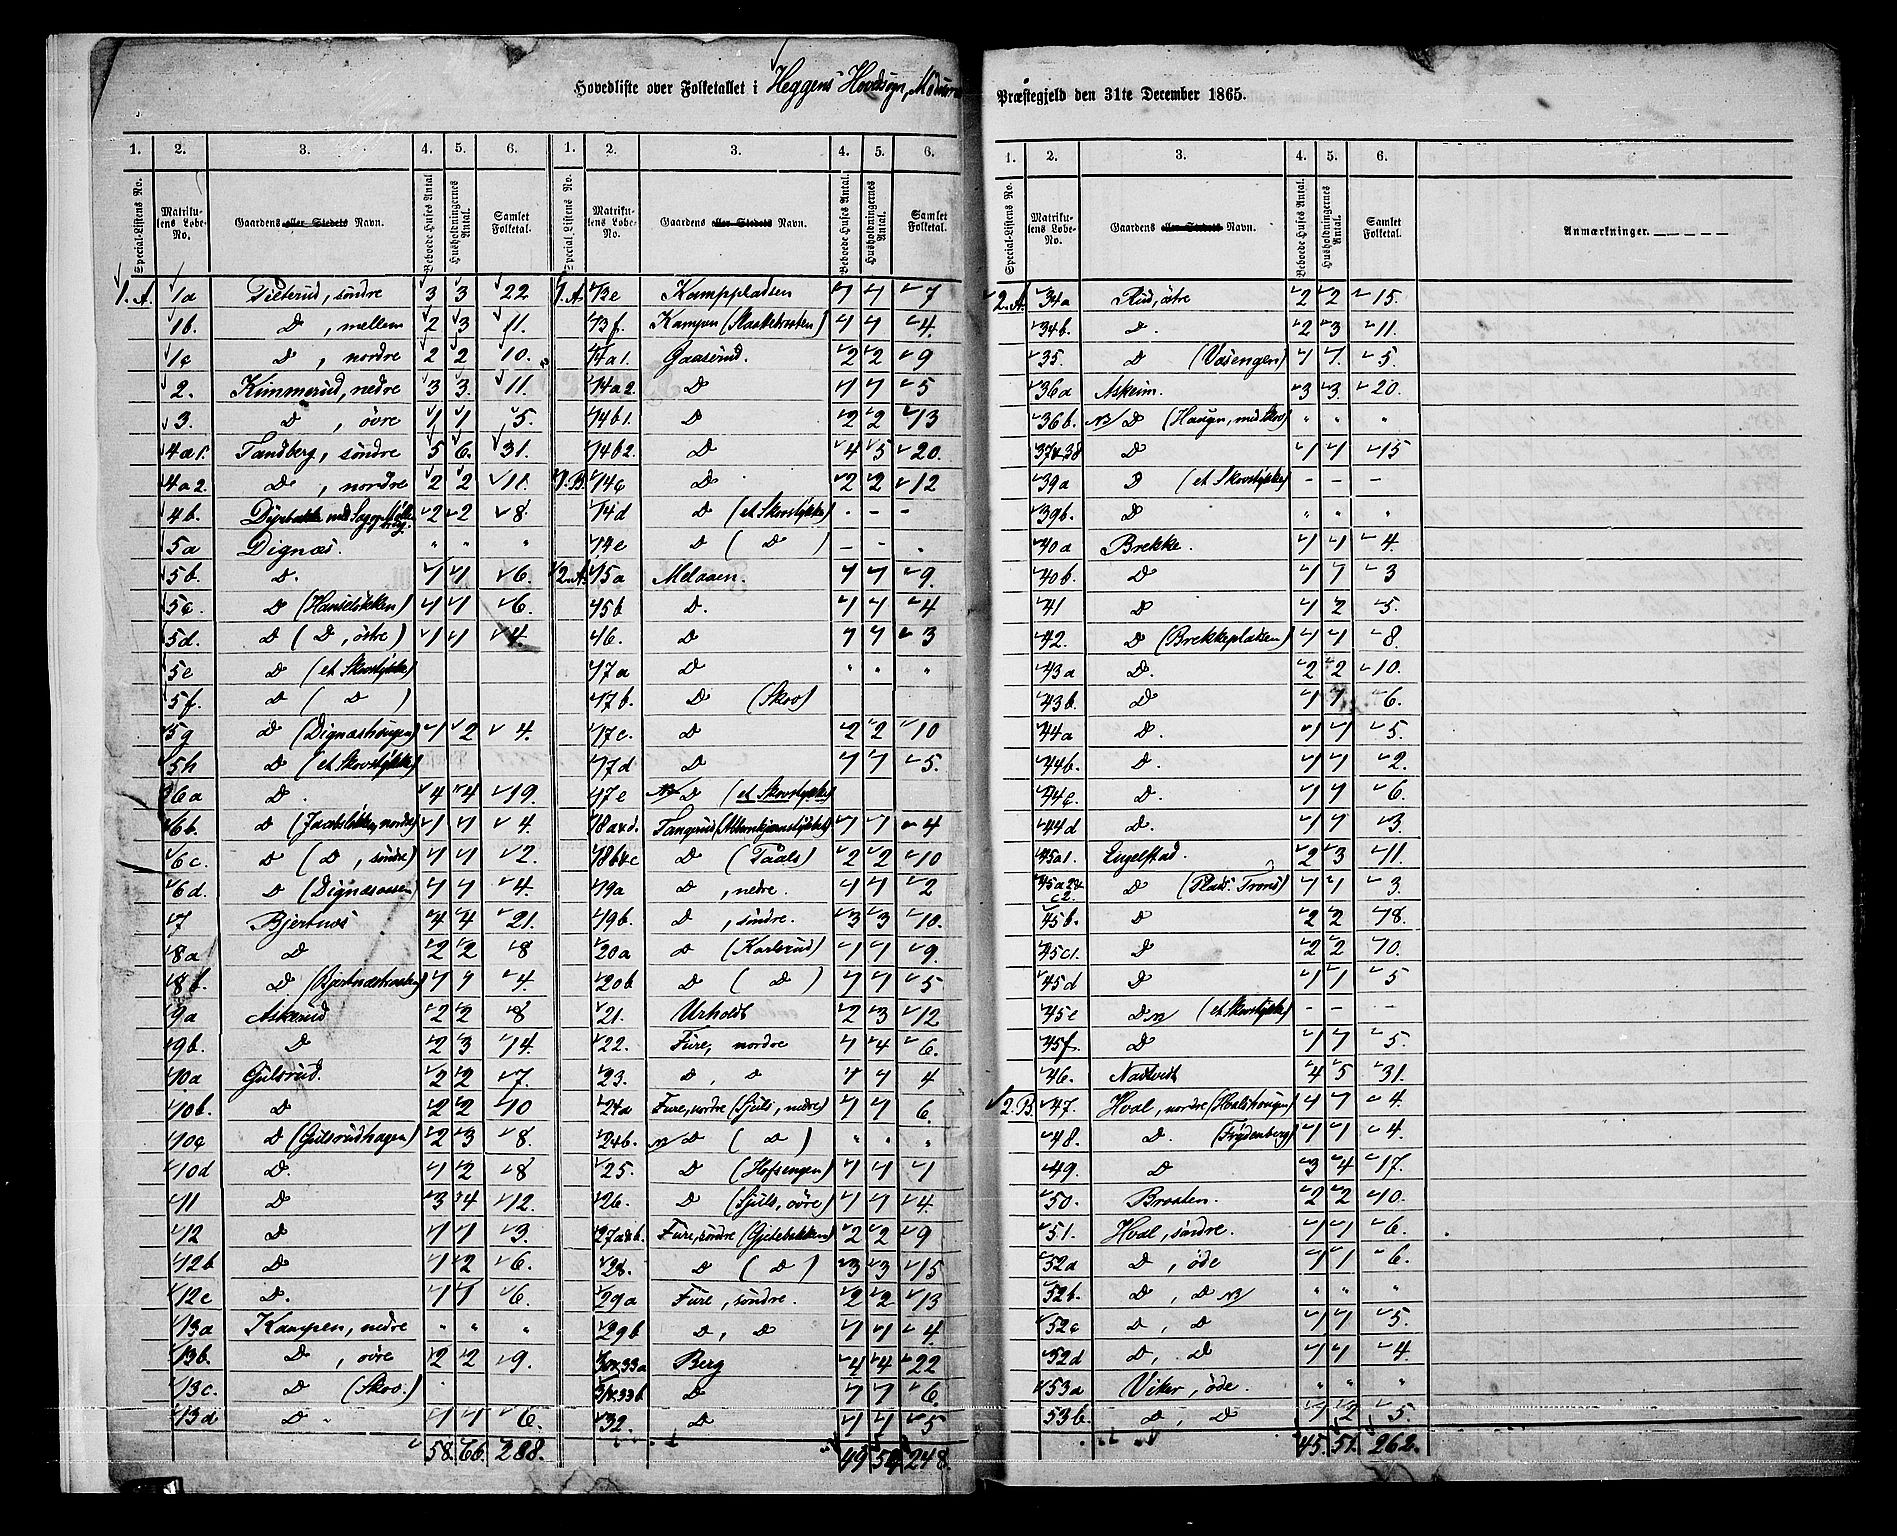 Hovedliste over Folketallet i Heggens Hovedsogn, Modums Præstegjeld den 31te December 1865.
1. 2. 3. 4. 5. 6. 1. 2. 3. 4. 5. 6.
Special-Listens No. Matrikulens Løbe-No. Gaardens eller Stedets Navn. Beboede Huses Antal Husholdningernes Antal. Samlet Folketal. Special-Listens No. Matrikulens Løbe-No. Gaardens eller Stedets Navn. Beboede Huses Antal. Husholdningernes Antal. Samlet Folketal.
1.A. 1a Tilterud, søndre 3 3 22
1b. D, mellem 2 3 11.
1c D, nordre 2 2 10.
2. Kimmerud, nedre 3 3. 11.
3. D, øvre 1 1 5.
4a1. Tandberg, søndre 5 6. 31.
4a2. D, nordre 2 2 11.
4b. 2 2 8.
5a Dignæs. " " "
5b. D. 1 1 6.
5c. D (Hanseløkken) 1 1 6.
5d. D (D, østre) 1 1 4.
5e D (et Skovstykke)
5f. D (D)
5g D (Dignæshougen) 1 2 4.
5h D (et Skovstykke)
6a D. 4 4 19.
6b. D (Jacobsløkken, nordre) 1 1 4.
6c. D (D, søndre) 1 1 2.
6d. D (Dignæsaasen) 1 1 4.
7 Bjertnæs 4 4 21.
8a D 2 2 8
8b. D (Bjertnæsbraaten) 1 1 4.
9a Askerud 2 2 8
9b. D 2 3 14.
10a Gulsrud. 2 2 7.
10b. D 2 2 10
10c D (Gulsrudhagen) 2 3 8.
10d D. 1 2 8
11 D 3 4 12.
12 D 1 1 3.
12b D 1 2 6.
12c D. 1 1 6.
13a Kampen, nedre " " "
13b. D, øvre 2 2 9.
13c. D (Skov.)
13d D 1 1 6.
58. 66. 288.
1.A. 13e Kamppladsen 1 1 7
13f. Kampen 1 1 4.
14a1. Gaaserud. 2 2 9
14a2. D 1 1 5
14b1. D 2 2 13
14b2. D 4 5 20.
1.B. 14c D 2 2 12
14d D (et Skovstykke) - - -
14e D (D) - - .
2.A. 15a Melaaen. 1 1 9.
15b D. 1 1 4
16. D 1 1 3
17a D " " "
17b. D (Skov)
17c. D 2 2 10
17d D 1 1 5.
17e NB D (et Skovstykke)
18a&d. 1 1 4
18b&c D (Taals) 2 2 10
19a D, nedre. 1 1 2
19b. D, søndre. 3 3 10.
20a D (Karlsrud) 1 1 9.
20b D (D) 1 1 5
21. Urholdt 2 3 12
22. Fure, nordre 1 4 6.
23. D, D 1 1 4
24a Fure, nordre (Sjuls, nedre) 1 1 6.
24b. NB D (D) " " "
25. D (Hofsengen) 1 1 1
26. D (Sjuls, øvre) 1 1 4
27a&b. Fure, søndre (Gjetebakken) 2 2 9
28. D (D) 3 3 15
29a Fure, søndre. 2 2 13
29b D, D 1 1 4.
30&33a Berg 4 4 22
31&33b D 1 1 6.
32. D 1 1 5
49 54 248.
1. 2. 3. 4. 5. 6.
Special-Listens No. Matrikulens Løbe-No. Gaardens eller Stedets Navn. Beboede Huses Antal. Husholdningernes Antal. Samlet Folketal. Anmærkninger.
2.A. 34a Rud, østre 2 2 15.
34b. D. 2 3 11.
35. D (Vasengen) 1 1. 5.
36a Askeim. 3 3. 20.
36b. NB D " " "
37&38 D 1 1 15
39a D (et Skovstykke) - - -
39b. D " " "
40a Brekke. 1 1 4.
40b. D 1 1 3
41 D 1 2 5.
42. D (Brekkepladsen) 1 1 8
43a D. 2 2 10.
43b. D 1 1 6.
44a D. 1 1 5.
44b. D. 1 1 2.
44c. D. 1 1 6.
44d D. 1 1 3.
45a1. Engelstad. 2 3 11.
45a2&c2. D 1 1 3.
45b. D 2 2 18.
45c1. D 2 2 10.
45d D 1 1 5
45e D NB (et Skovstykke) - - -
45f. D 1 1 5.
46. Nadtvedt 4 5 31.
2.B. 47. Hval, nordre (Hvalshougen) 1 1 4.
48. D. (Frydenberg) 1 1 4.
49. D 3 4 17.
50. Braaten. 2 2 10.
51. Hval, søndre. 1 1 6.
52a D, øde 1 1 6.
52b. D, D NB " " "
52c D, D 1 1 5.
52d D, D 1 1 4.
53a Viker, øde. " " "
53b. D, D 1 2 5.
45. 51. 262.